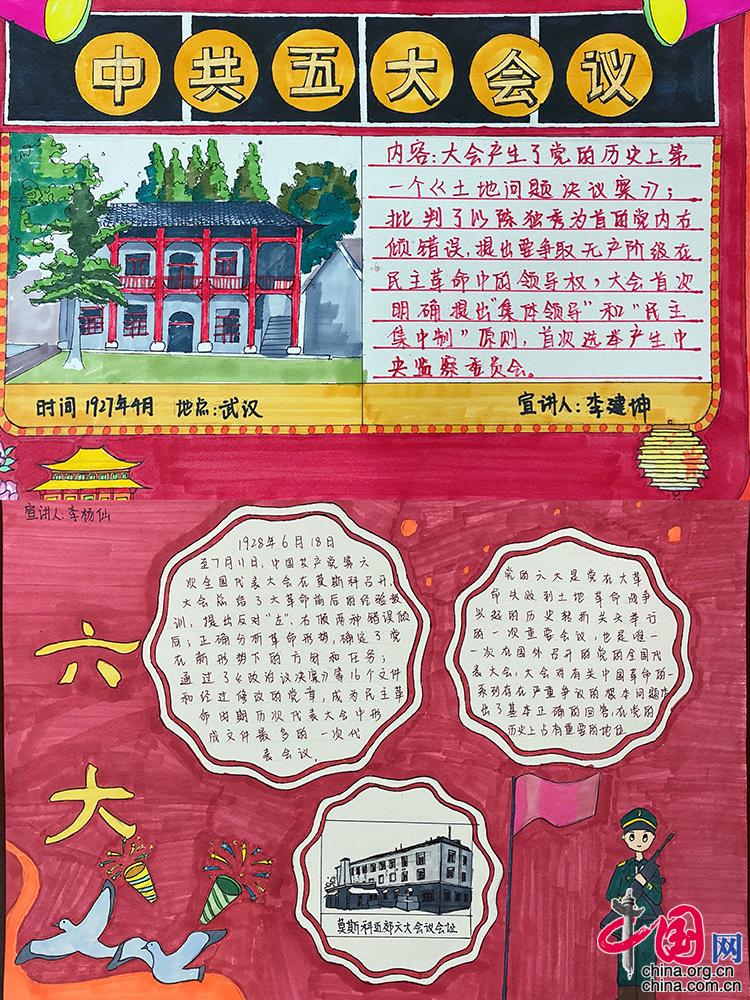 中共五大会议
内容:大会产生了党的历史上第
一个《土地问题决议案》;
批判了以陈独秀为首的党内右
倾错误,提出要争取无产阶级在
民主革命中的领导权,大会首次
明确提出"集体领导"和"民主
集中制"原则,首次选举产生中
央监察委员会。
时间1927年4月 地点:武汉
宣讲人:李建坤
宣讲人:李杨仙
六大
1928年6月18日
至7月11日,中国共产党第六
次全国代表大会在莫斯科召开,
大会总结了大革命前后的经验教
训,提出反对"左"、右倾两种错误倾
向;正确分析革命形势,确定了党
在新形势下的方针和任务;
通过了《政治议决案》等16个文件
和经过修改的党章,成为民主革
命时期历次代表大会中形
成文件最多的一次代
表会议。
党的六大是党在大革
命失败到土地革命战争
兴起的历史转折关头举行
的一次重要会议,也是唯一
一次在国外召开的党的全国代
表大会,大会对有关中国革命的一
系列存在严重争议的根本问题作
出了基本正确的回答,在党的
历史上占有重要的地位
莫斯科近郊六大会议会址
中国网
china.org.cn
china.com.cn